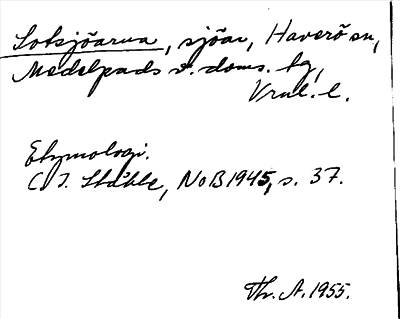 Lotsjöarna, sjöar, Haverö sn,
Medelpads v. doms. tg,
Vrnl. l.
Etymologi.
C. I. Ståhle, NoB 1945, s. 37.
Thr. A. 1955.